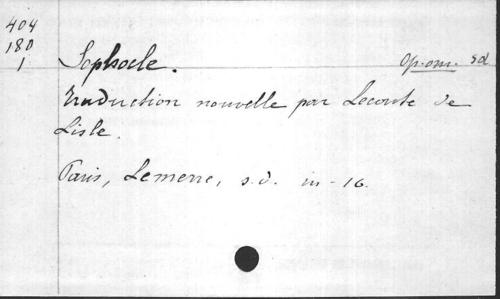 404
180
1
Sophocle. Op. om. sd
Traduction nouvelle par Leconte de
Lisle.
Paris, Lemerre, s.d. in-16.